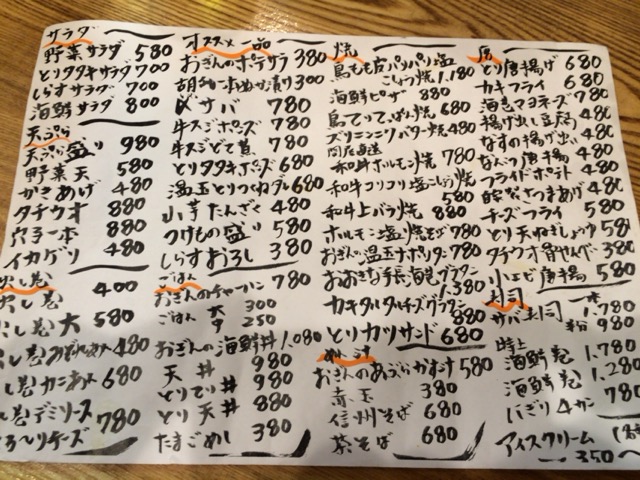 サラダ
野菜サラダ 580
とりタタキサラダ 700
しらすサラダ 700
海鮮サラダ 800
天ぷら
天ぷら盛り 980
野菜天 580
かきあげ 480
タチウオ 880
穴子一本 880
イカゲソ 480
出し巻
出し巻 400
出し巻 大 580
し巻 480
し巻カニあん 680
し巻デミソース
とろ〜りチーズ 780
オススメ一品
おぎんのポテサラ 380
300
〆サバ 780
牛スジポンズ 780
牛スジどて煮 780
とりタタキポンズ 680
温玉とりつくねダレ 680
小芋たんざく 480
つけもの盛り 580
しらすおろし 380
ごはん
おぎんのチャーハン 780
ごはん 大 300
中 250
おぎんの海鮮丼 1.080
天丼 980
とりてり丼 980
とり天丼 880
たまごめし 380
焼
鳥もも皮パリパリ塩
こしょう焼 1.180
海鮮ピザ 880
鳥てりてっぱん焼 680
ズリニンニクバター焼 480
間尾直送
和牛ホルモン焼 780
和牛コリコリ塩こしょう焼
580
和牛上バラ焼 880
ホルモン塩焼そば 780
おぎんの温玉ナポリタン 780
おおきな手長海老グラタン
1.380
カキタルタルチーズグラタン
880
とりカツサンド 680
めん、汁
おぎんのあぶらかす汁 580
赤玉 380
信州そば 680
茶そば 680
唐
とり唐揚げ 680
カキフライ 680
海老マヨネーズ 780
揚げ出し豆腐 480
なすの揚げ出し 480
なんこつ唐揚 480
フライドポテト 480
自家製さつまあげ 480
チーズフライ 580
とり天ねぎしょうゆ 580
タチウオ骨せんべい 380
小エビ唐揚 580
寿司
サバ寿司 一本 1.780
980
特上
海鮮巻 1.780
海鮮巻 1.280
にぎり4カン 780
アイスクリーム
350〜